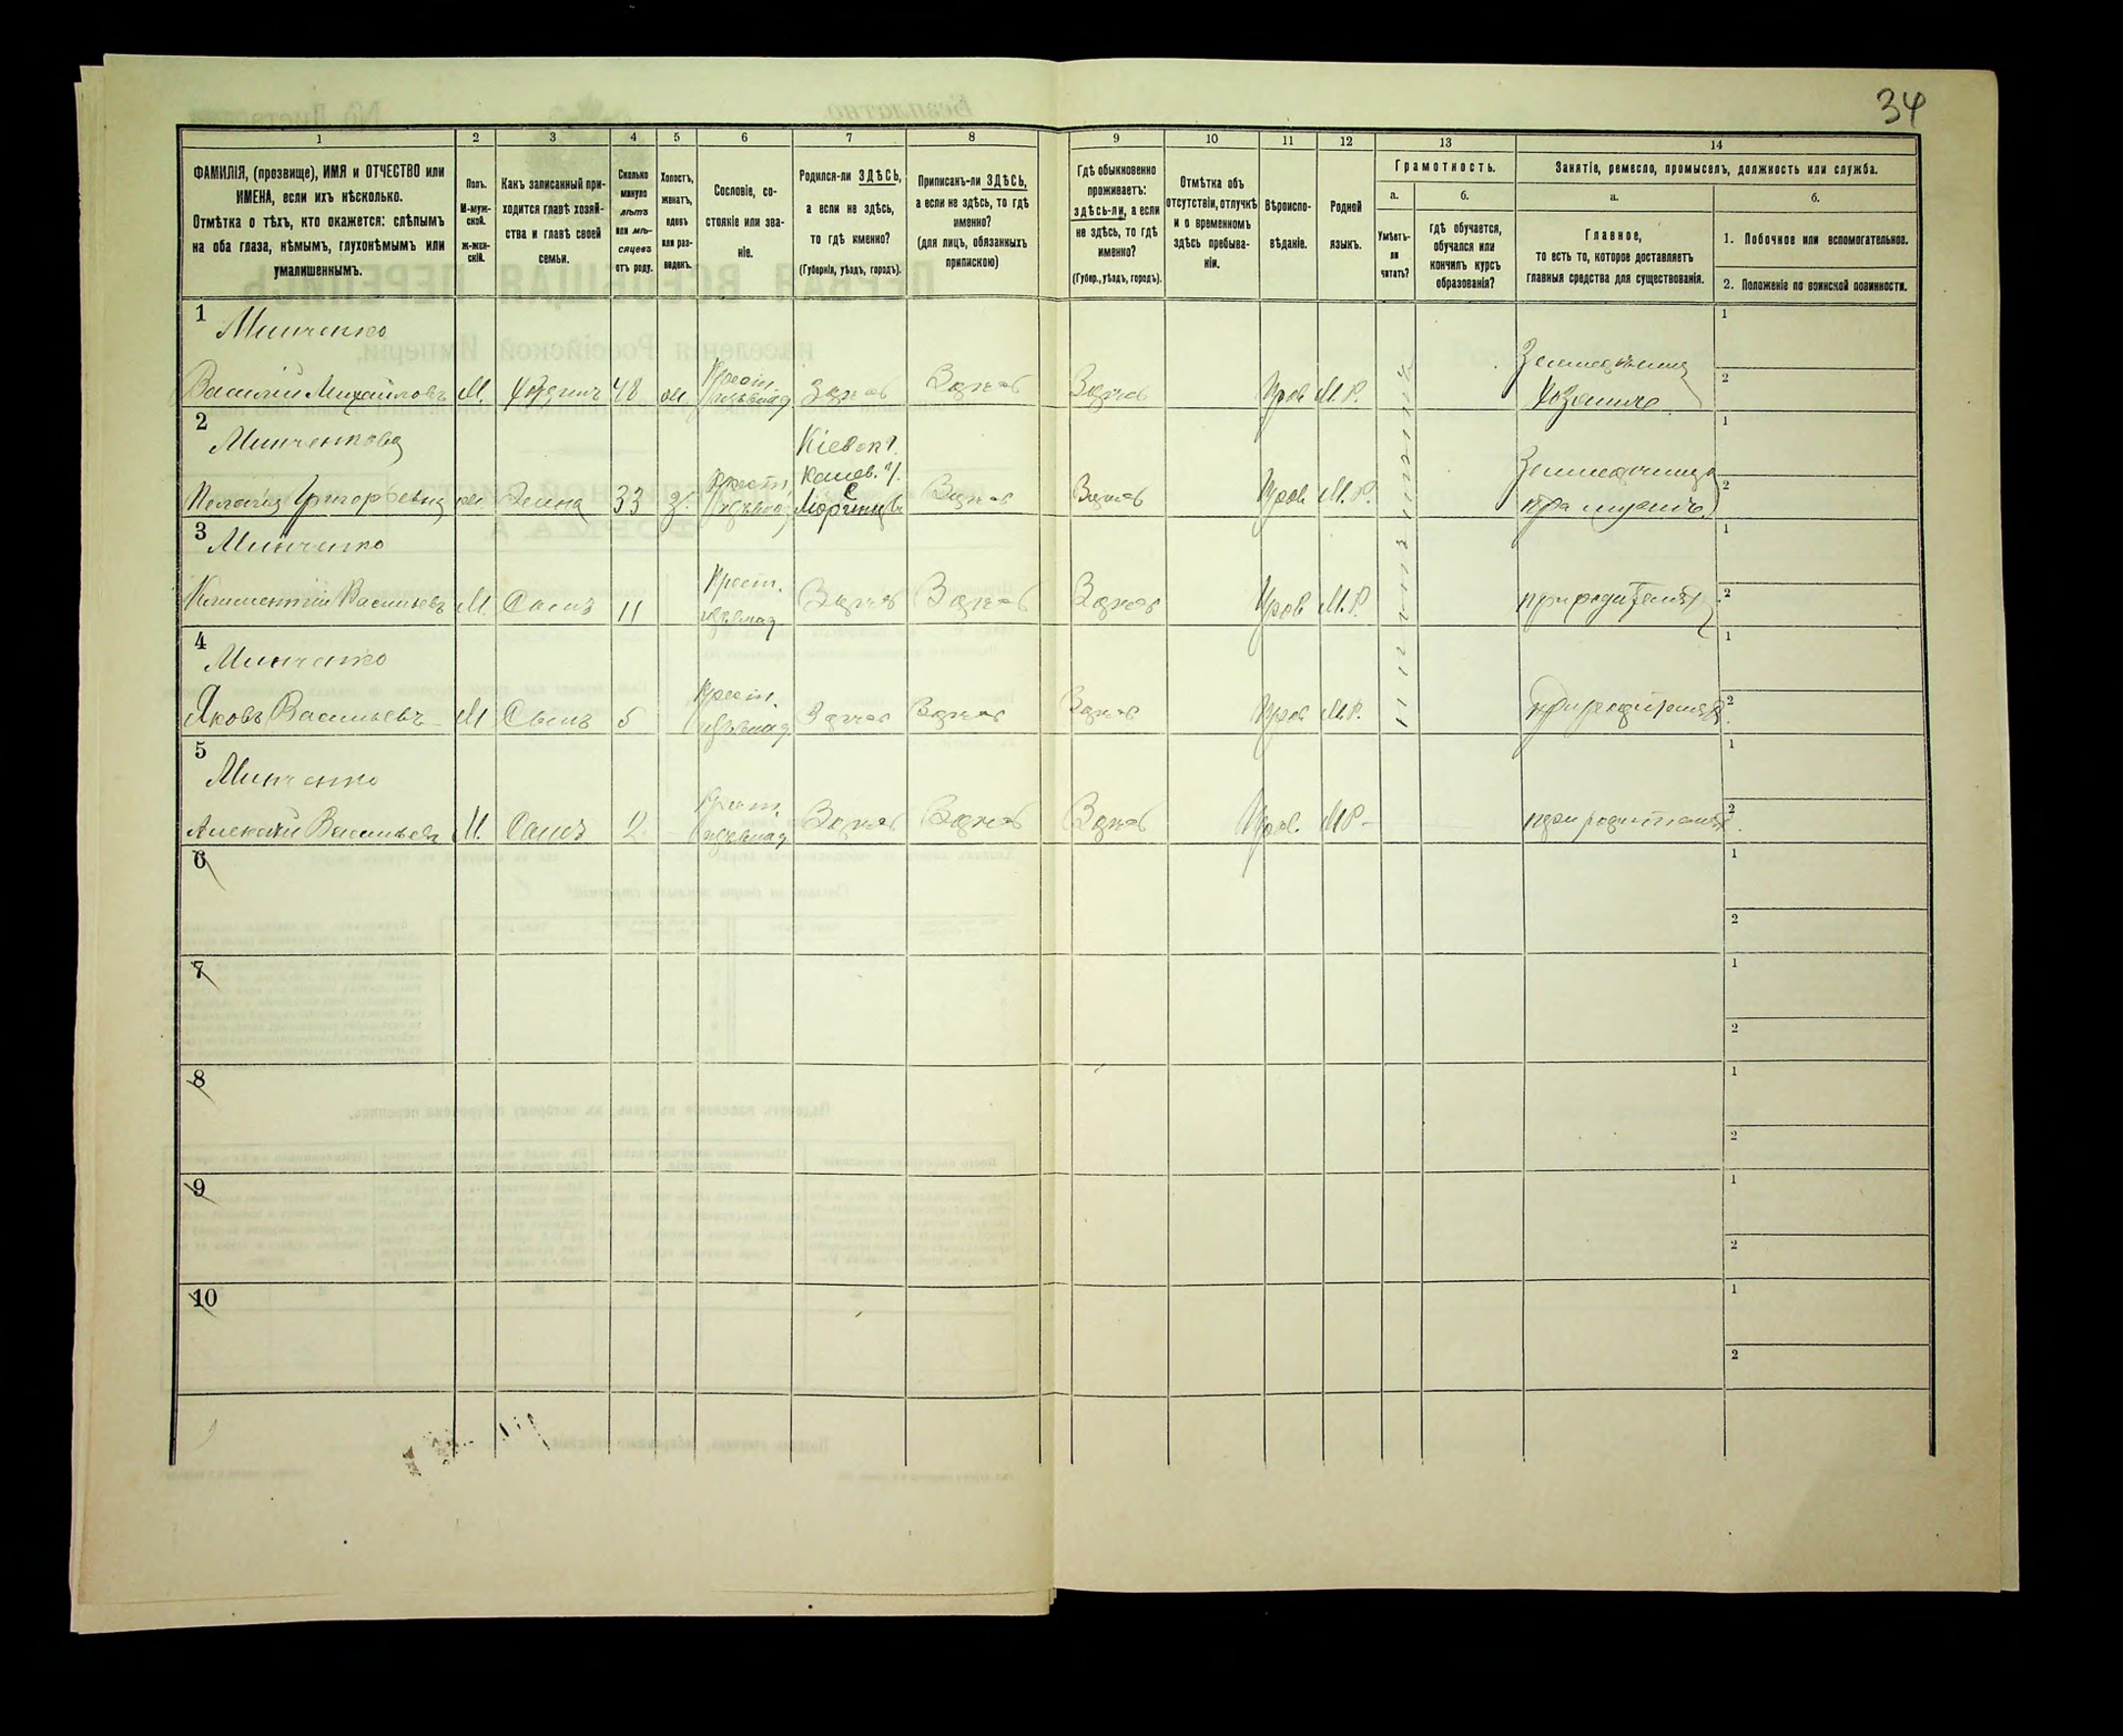 34
1
2
3
4
5
6
7
8
9
10
11
12
13
14
ФАМИЛІЯ, (прозвище), ИМЯ и ОТЧЕСТВО или
ИМЕНА, если ихъ нѣсколько.
Отмѣтка о тѣхъ, кто окажется: слѣпымъ
на оба глаза, нѣмымъ, глухонѣмымъ или
умалишеннымъ.
Полъ.
М-муж-
ской.
ж-жен-
скій.
Какъ записанный при-
ходится главѣ хозяй-
ства и главѣ своей
семьи.
Сколько
минуло
лѣтъ
или мѣ-
сяцевъ
отъ роду.
Холостъ,
женатъ,
вдовъ
или раз-
веденъ.
Сословіе, со-
стояніе или зва-
ніе.
Родился-ли ЗДѢСЬ,
а если не здѣсь,
то гдѣ именно?
(Губернія, уѣздъ, городъ).
Приписанъ-ли ЗДѢСЬ,
а если не здѣсь, то гдѣ
именно?
(для лицъ, обязанныхъ
припискою)
Гдѣ обыкновенно
проживаетъ:
здѣсь-ли, а если
не здѣсь, то гдѣ
именно?
(Губер., уѣздъ, городъ).
Отмѣтка объ
отсутствіи, отлучкѣ
и о временномъ
здѣсь пребыва-
ніи.
Вѣроиспо-
вѣданіе.
Родной
языкъ.
Грамотность.
а.
Умѣетъ-
ли
читать?
б.
гдѣ обучается,
обучался или
кончилъ курсъ
образованія?
Занятіе, ремесло, промыселъ, должность или служба.
а.
Главное,
то есть то, которое доставляетъ
главныя средства для существованія.
б.
1. Побочное или вспомогательное.
2. Положеніе по воинской повинности.
1
Минченко
Василій Михайловъ М. 48 Крест. Здѣсь Здѣсь Здѣсь Прав М. Р.
Хозяинъ
1
2
2
Минченкова
Кіевск г.
Канев. у.
Пелагія Григорьевна Жена 33 Крест. Моринцы Здѣсь Здѣсь Прав М. Р.
при мужѣ
1
2
3
Минченко
Климентій Васильевъ М. Сынъ 11 Крест. Здѣсь Здѣсь Здѣсь Прав М. Р. при родителяхъ
1
2
4
Минченко
Яковъ Васильевъ М Сынъ 5 Крест. Здѣсь Здѣсь Здѣсь Прав М. Р. при родителяхъ
1
2
5
Минченко
Алексѣй Васильевъ М. Сынъ 2 Крест. Здѣсь Здѣсь Здѣсь Прав. М Р. при родителяхъ
1
2
6
1
2
7
1
2
8
1
2
9
1
2
10
1
2